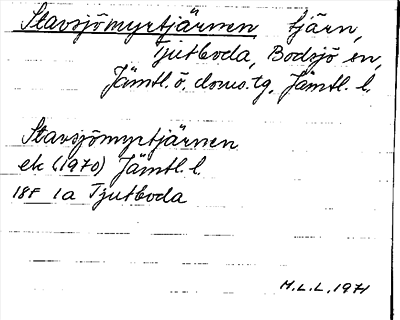 Stavsjömyrtjärnen tjärn,
Tjutboda, Bodsjö sn,
Jämtl. ö. doms.tg, Jämtl. l.
Stavsjömyrtjärnen
ek (1970) Jämtl. l.
18F 1a Tjutboda
M.L.L. 1971